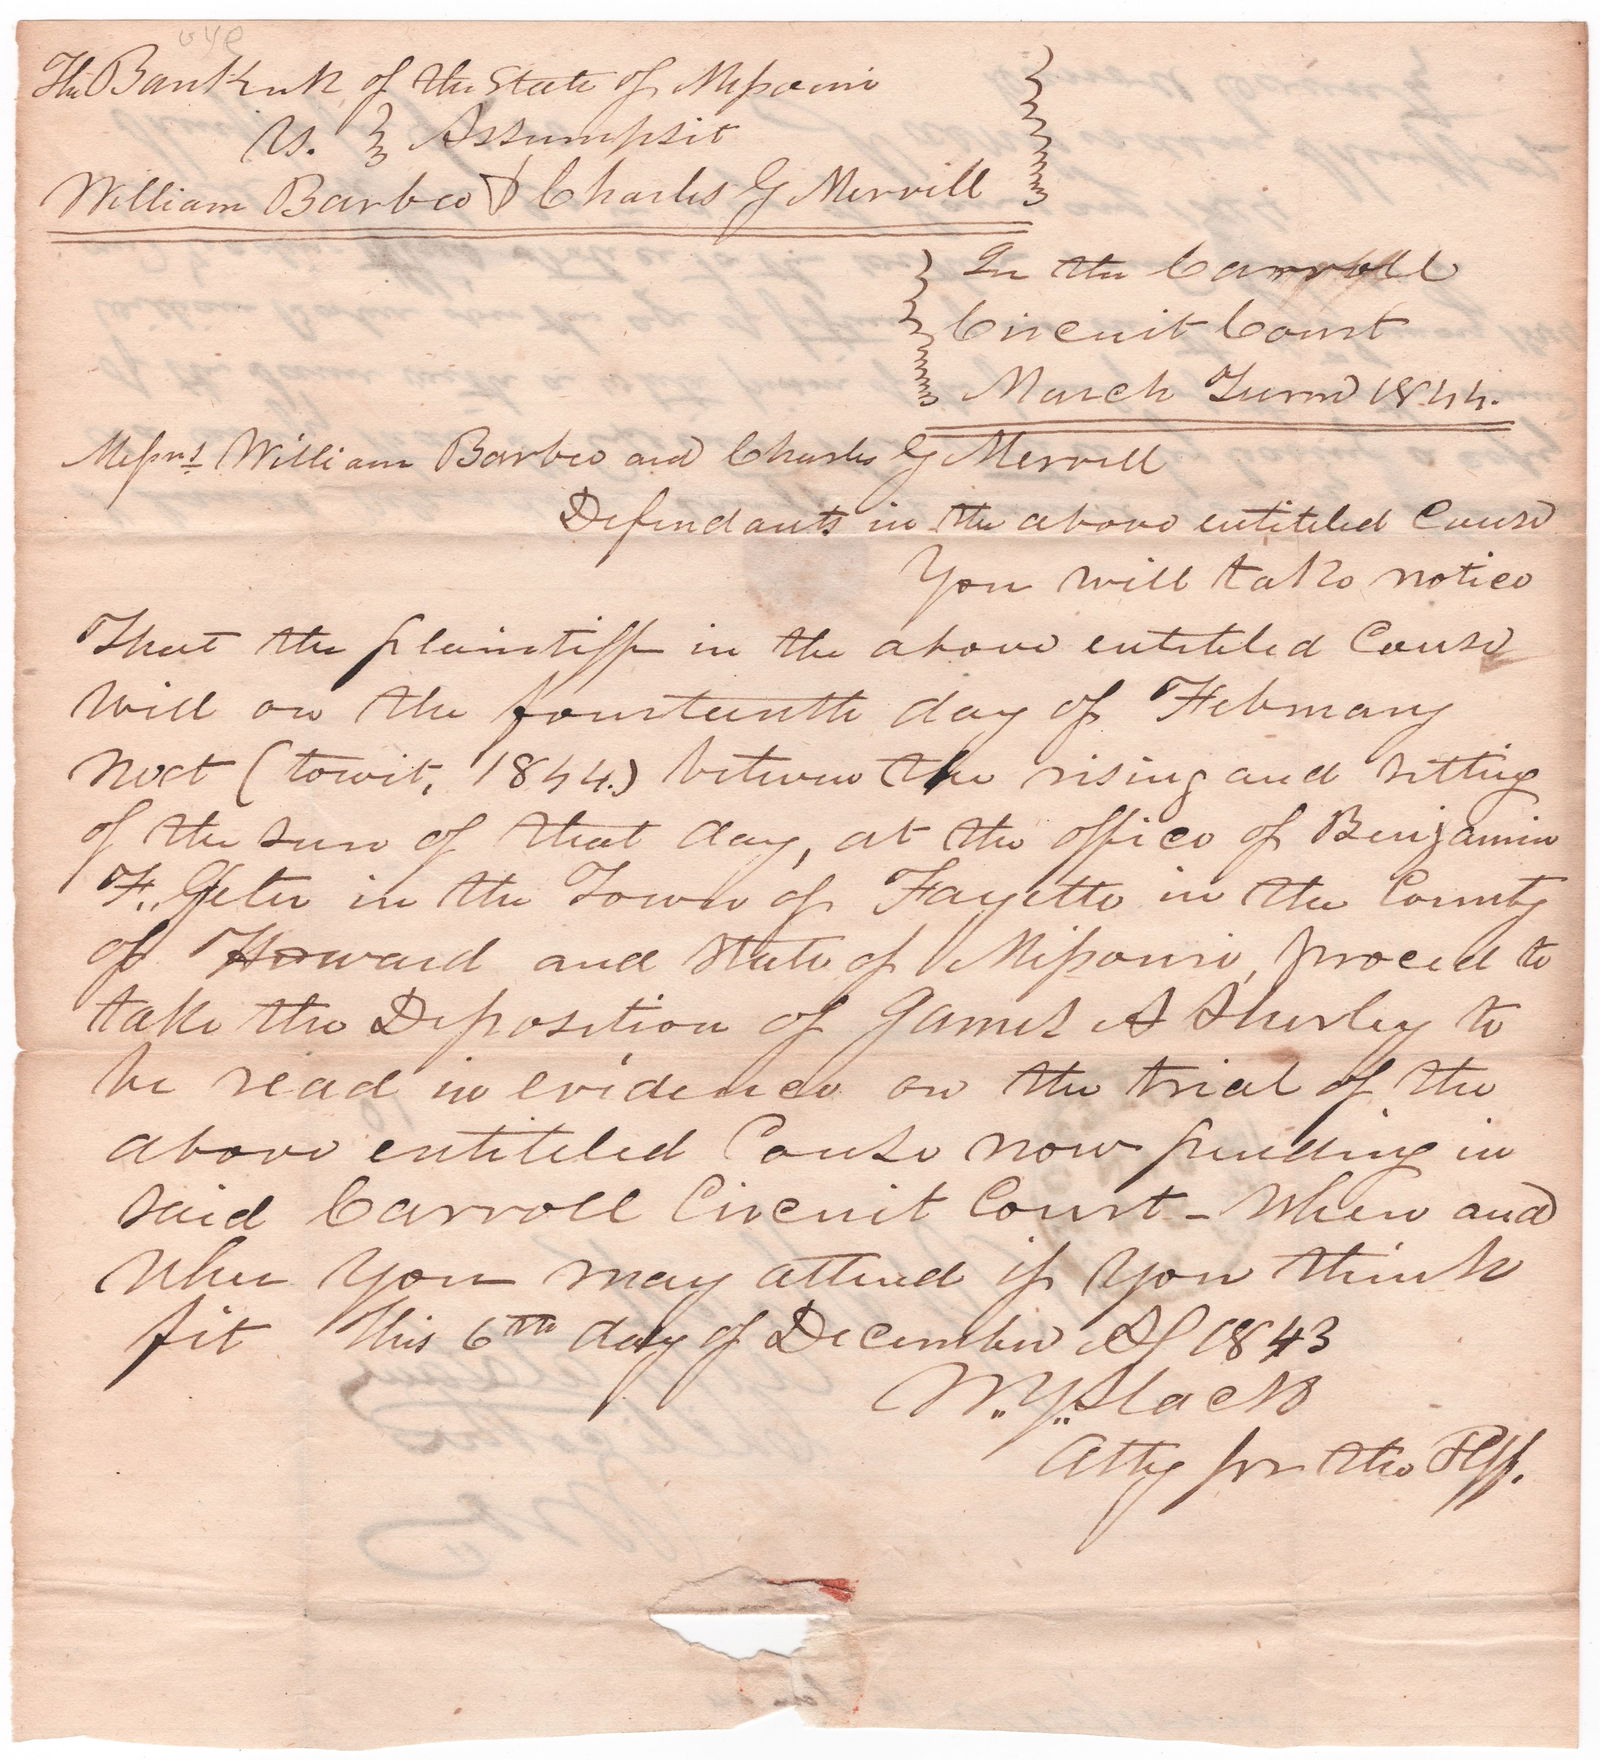 The Bank of the State of Missouri
vs. } Assumpsit
William Barbee & Charles G Merrill
In the Carroll
Circuit Court
March Term 1844.
Messrs William Barbee and Charles G Merrill
Defendants in the above entitled Cause
You will take notice
That the plaintiff in the above entitled Cause
will on the fourteenth day of February
next (towit, 1844.) between the rising and setting
of the sun of that day, at the office of Benjamin
F. Yeter in the Town of Fayette in the County
of Howard and State of Missouri, proceed to
take the Deposition of James A Shirley to
be read in evidence on the trial of the
above entitled Cause now pending in
said Carroll Circuit Court - When and
wher you may attend if you think
fit This 6th day of December AD 1843
W. Y. Slack
Atty for the Plff.